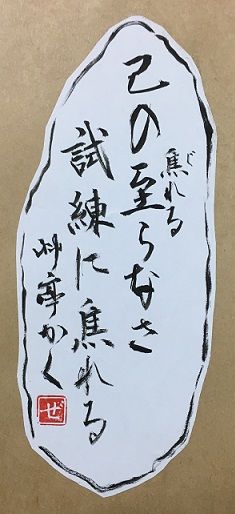 己の至らなさ
焦れる
じ
試練に焦れる
艸亭かく
ぜ